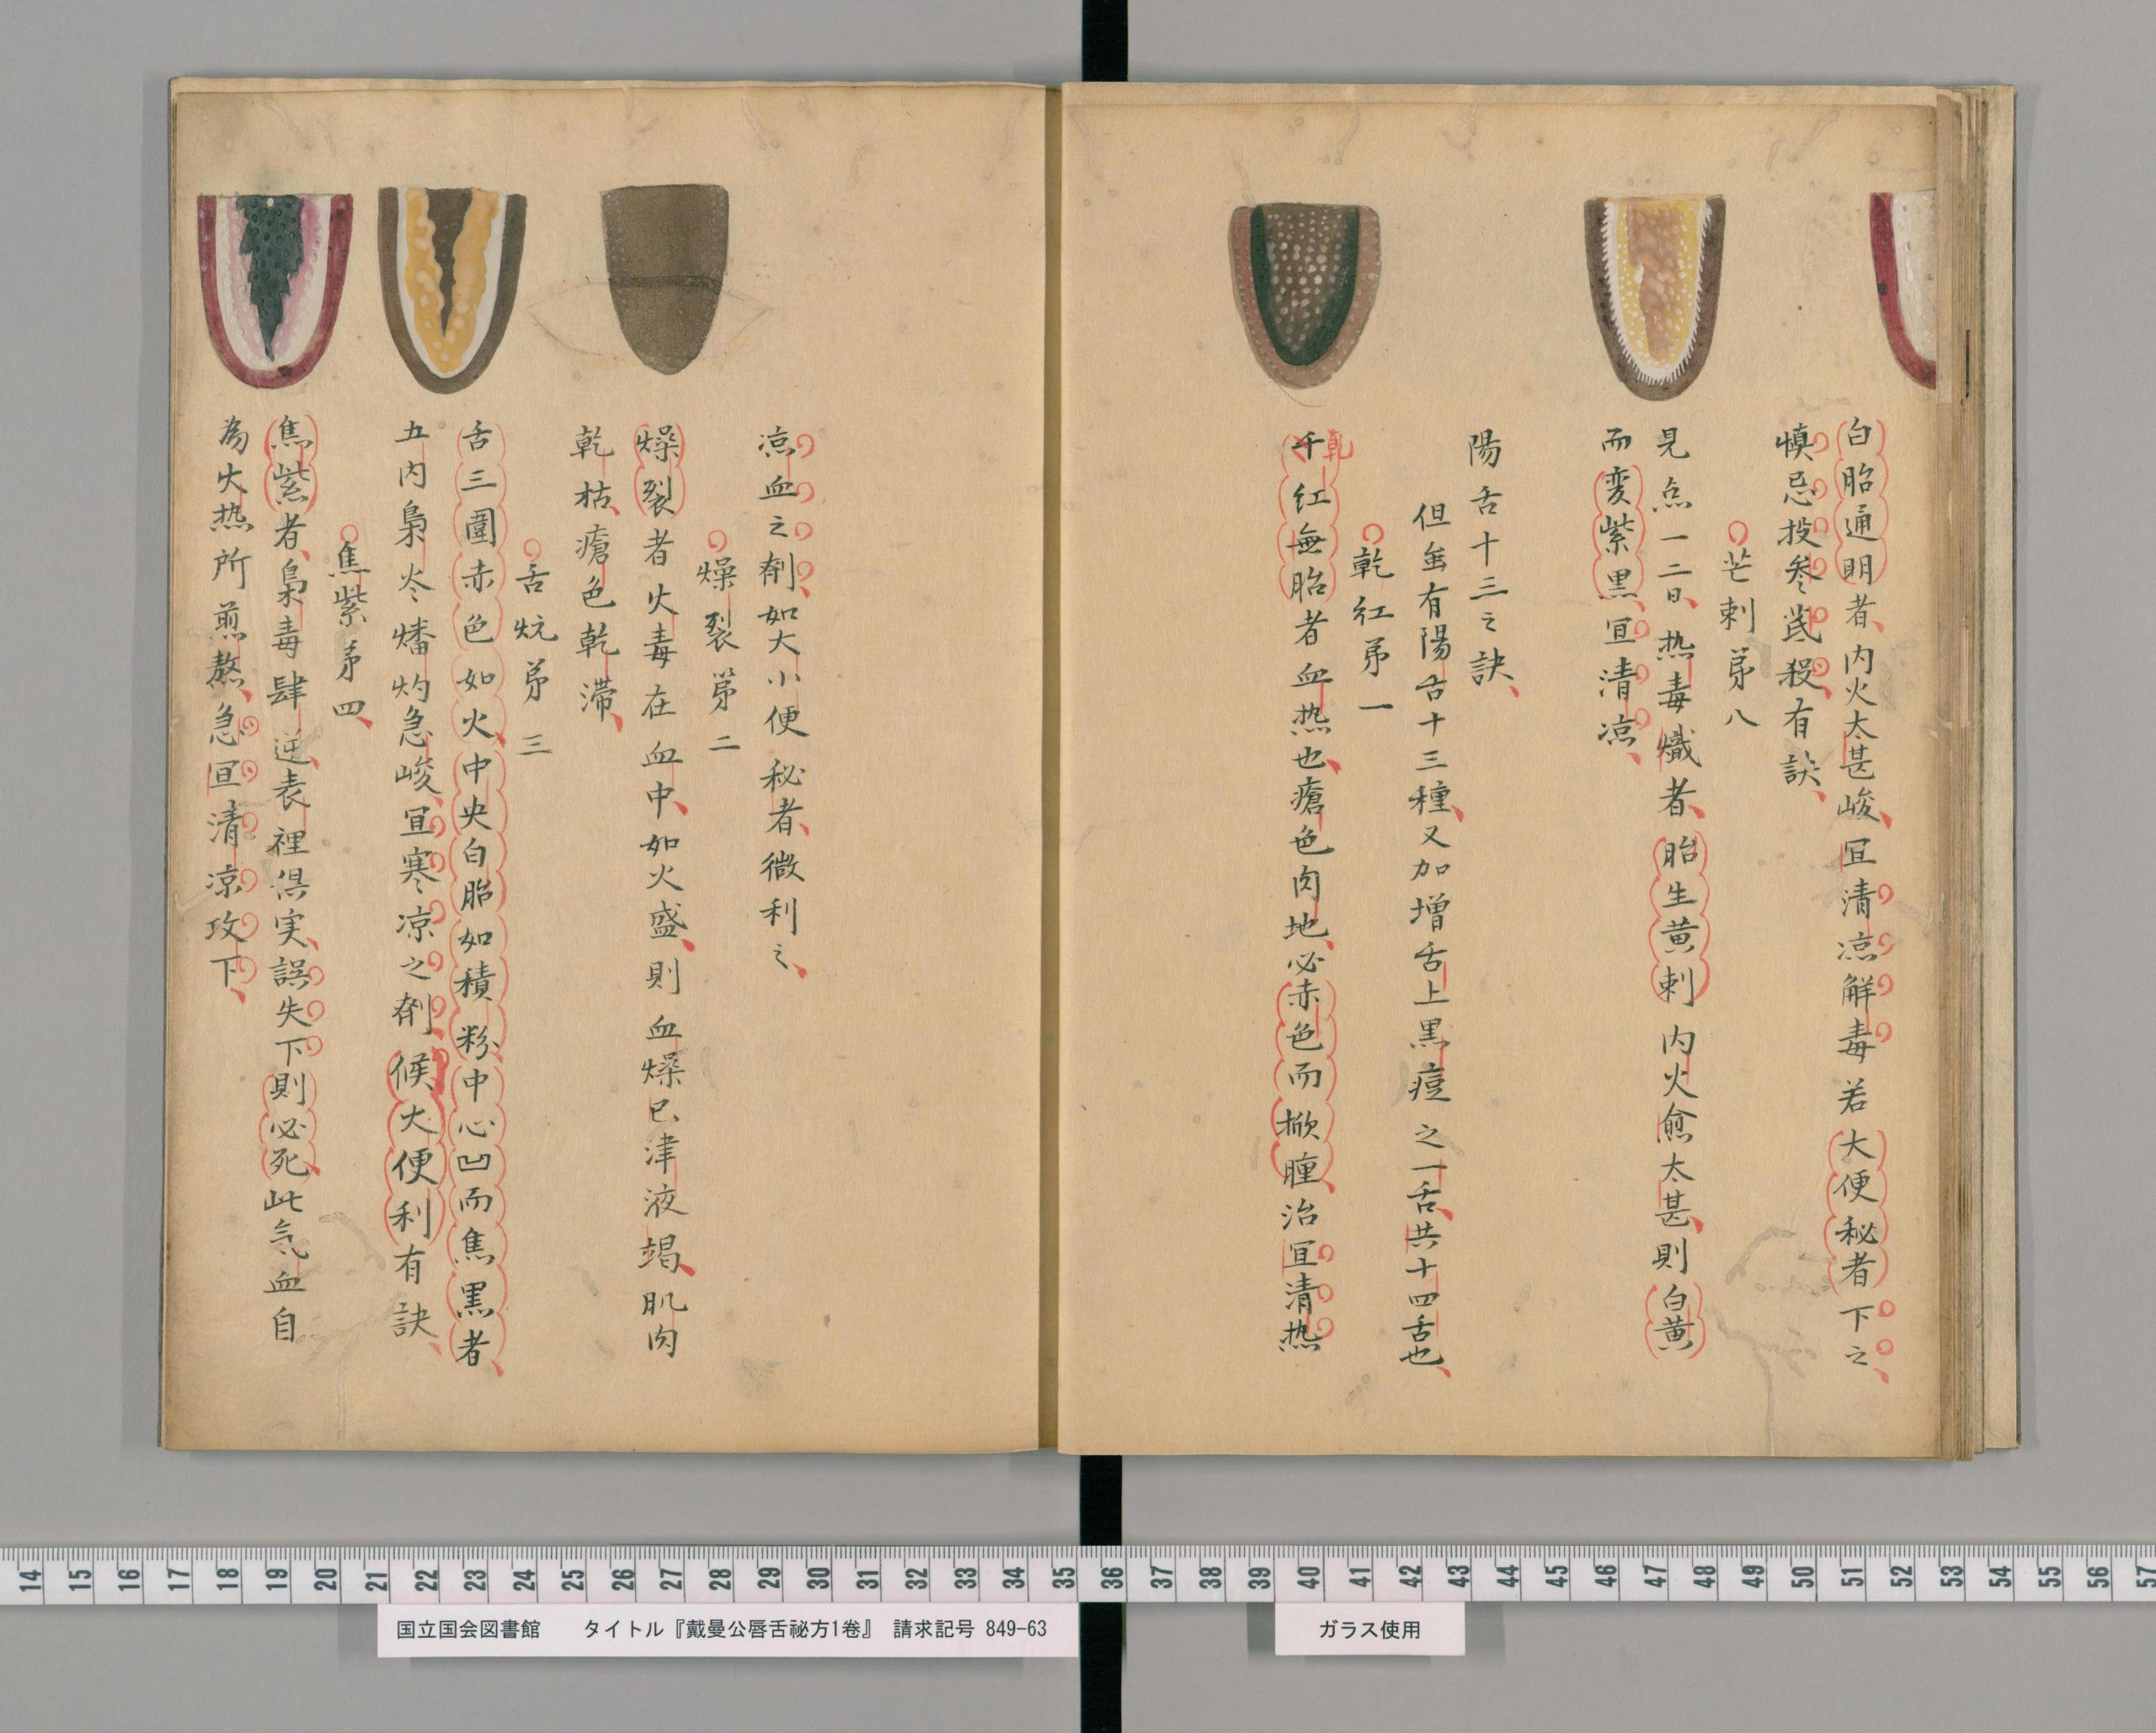 白胎通明者内火太甚峻宜清凉解毒若大便秘者下之
慎忌投参芪殺有訣
芒刺苐八
見点一二日热毒熾者胎生黄刺内火愈太甚則白黄
而変紫黒宜清凉
陽舌十三之訣
但虽有陽舌十三種又加増舌上黒痘之一舌共十四舌也
乾紅苐一
乾
干紅無胎者血热也瘡色肉地必赤色而掀腫治宜清热
凉血之剤如大小便秘者微利之
燥裂苐二
燥裂者火毒在血中如火盛則血燥已津液竭肌肉
乾枯瘡色乾滞
舌炕苐三
舌三圍赤色如火中央白胎如積粉中心凹而焦黒者
五内梟炎燔灼急峻宜寒凉之剤候大便利有訣
焦紫苐四
焦紫者梟毒肆逆表裡倶実誤失下則必死此気血自
為火热所煎熬急宜清凉攻下
14 15 16 17 18 19 20 21 22 23 24 25 26 27 28 29 30 31 32 33 34 35 36 37 38 39 40 41 42 43 44 45 46 47 48 49 50 51 52 53 54 55 56 57
国立国会図書館 タイトル『戴曼公唇舌祕方1巻』 請求記号 849-63
ガラス使用